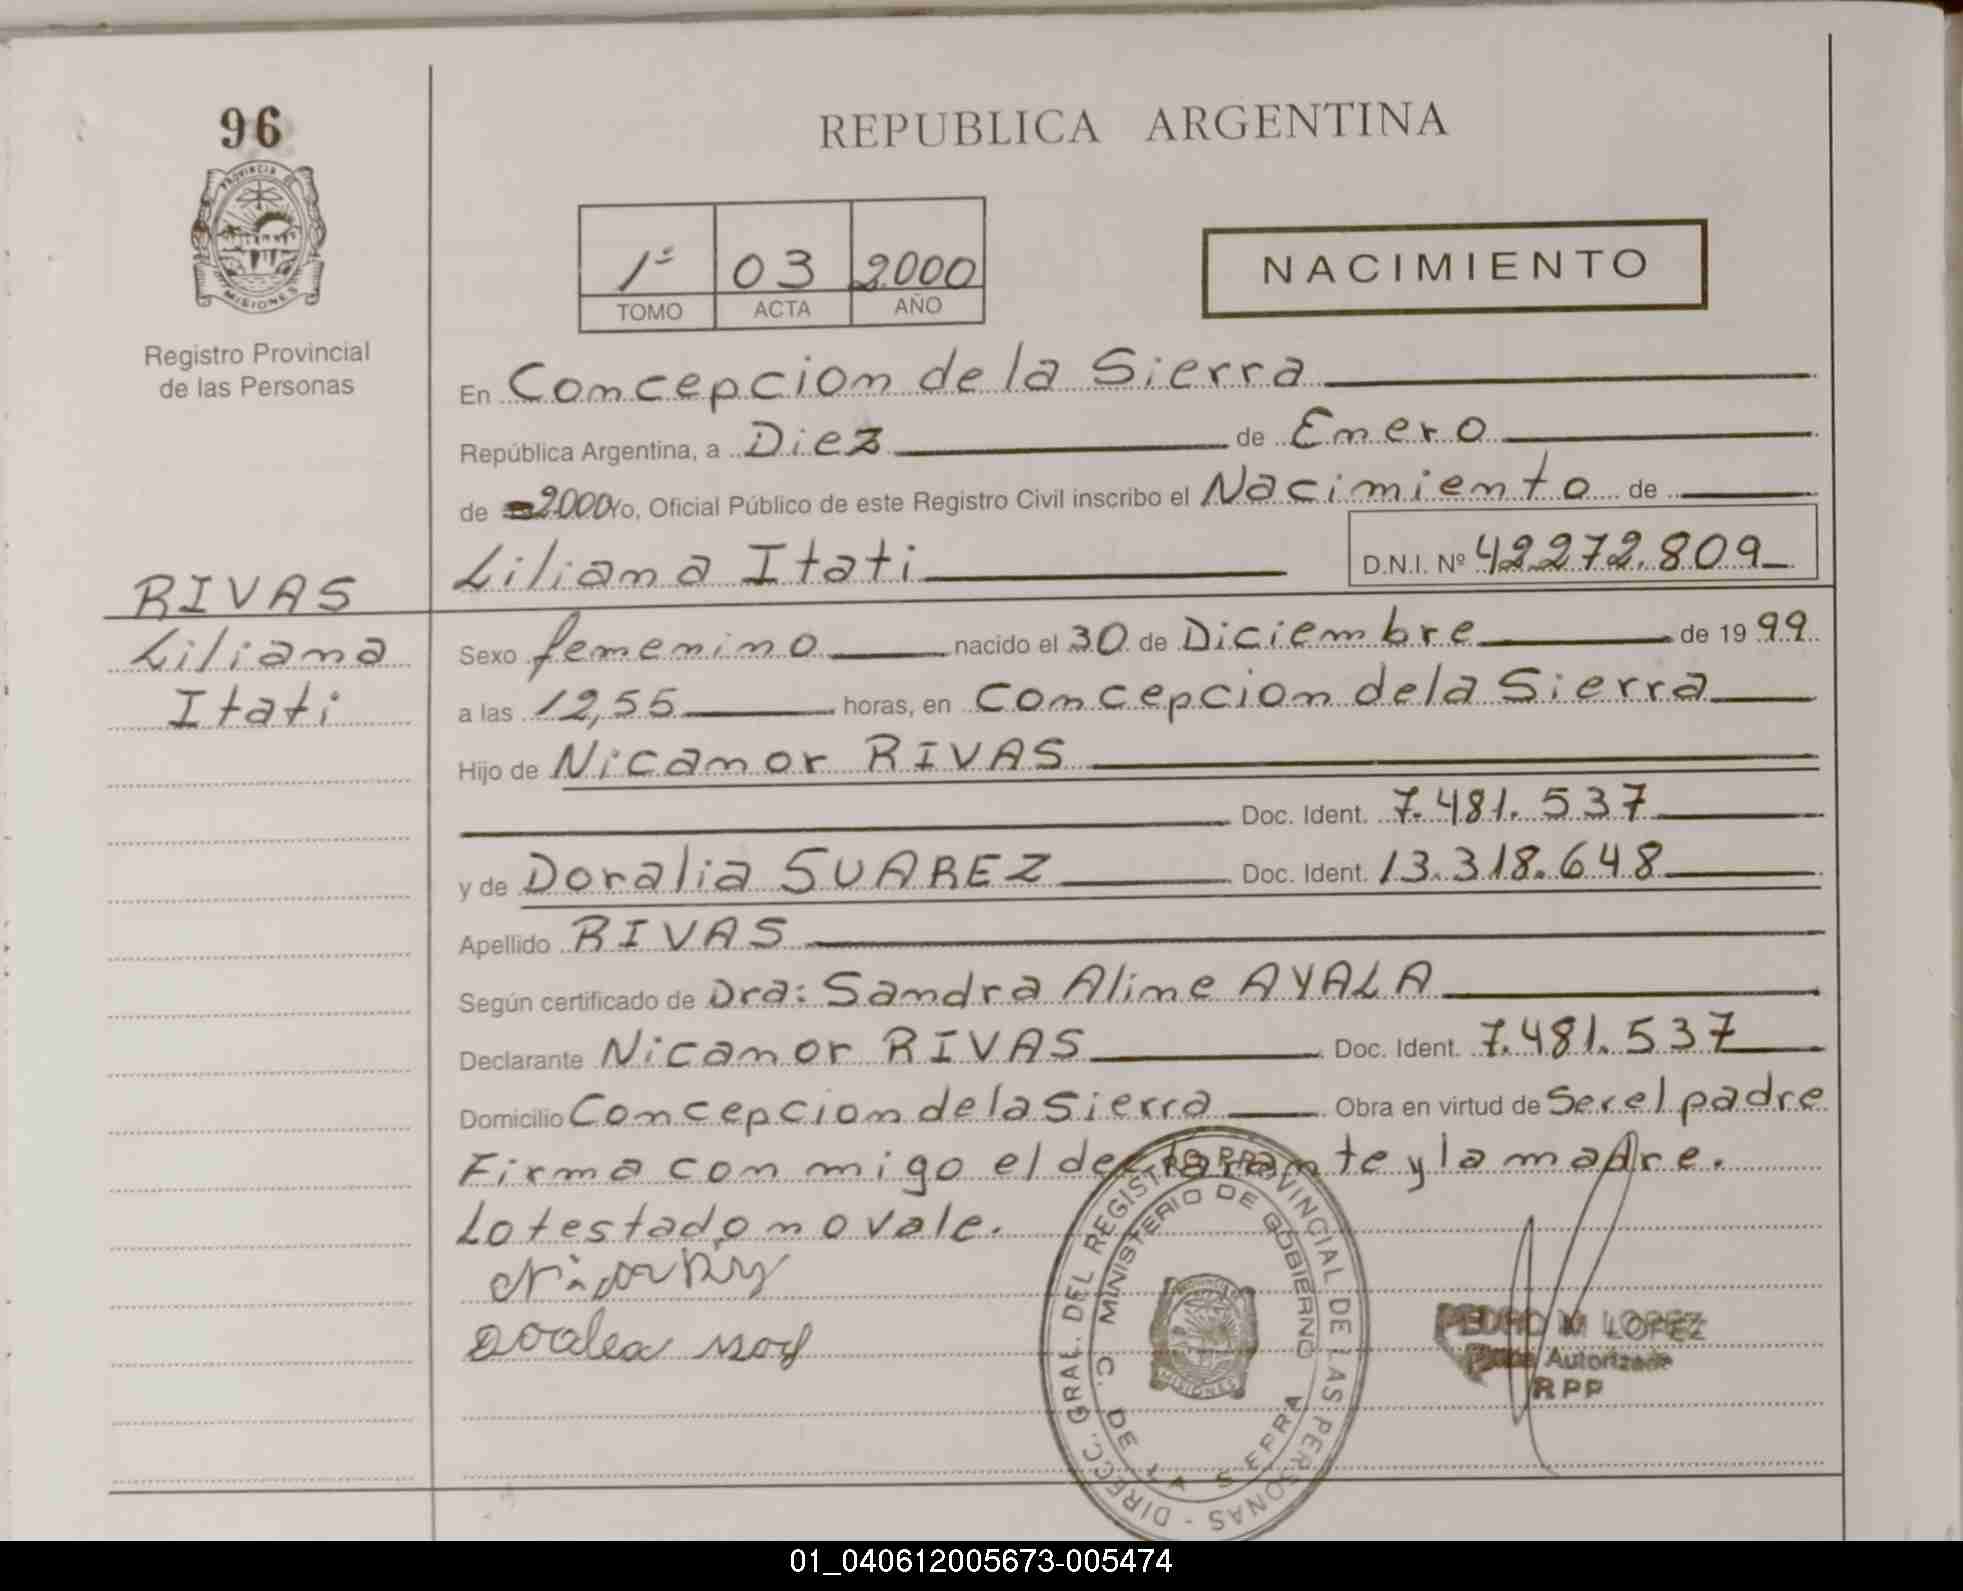 96
REPUBLICA ARGENTINA
PROVINCIA DE
MISIONES
Registro Provincial
de las Personas
1º 03 2000
TOMO ACTA AÑO
NACIMIENTO
En Concepcion de la Sierra
República Argentina, a Diez de Enero
de 2000 Yo, Oficial Público de este Registro Civil inscribo el Nacimiento de
Liliana Itati D.N.I. Nº 42272.809
RIVAS
Liliana
Itati
Sexo femenino nacido el 30 de Diciembre de 19 99
a las 12,55 horas, en Concepcion de la Sierra
Hijo de Nicanor RIVAS
Doc. Ident. 7.481.537
y de Doralia SUAREZ Doc. Ident. 13.318.648
Apellido RIVAS
Según certificado de Dra: Sandra Aline AYALA
Declarante Nicanor RIVAS Doc. Ident. 7.481.537
Domicilio Concepcion de la Sierra Obra en virtud de Ser el padre
Firma con migo el declarante y la madre.
Lo testado no vale.
DIRECC. GRAL. DEL REGISTRO PROVINCIAL DE LAS PERSONAS -
MINISTERIO DE GOBIERNO
C. DE LA SIERRA
R.P.P.
MISIONES
PEDRO M LOPEZ
Autorizado
RPP
01_040612005673-005474